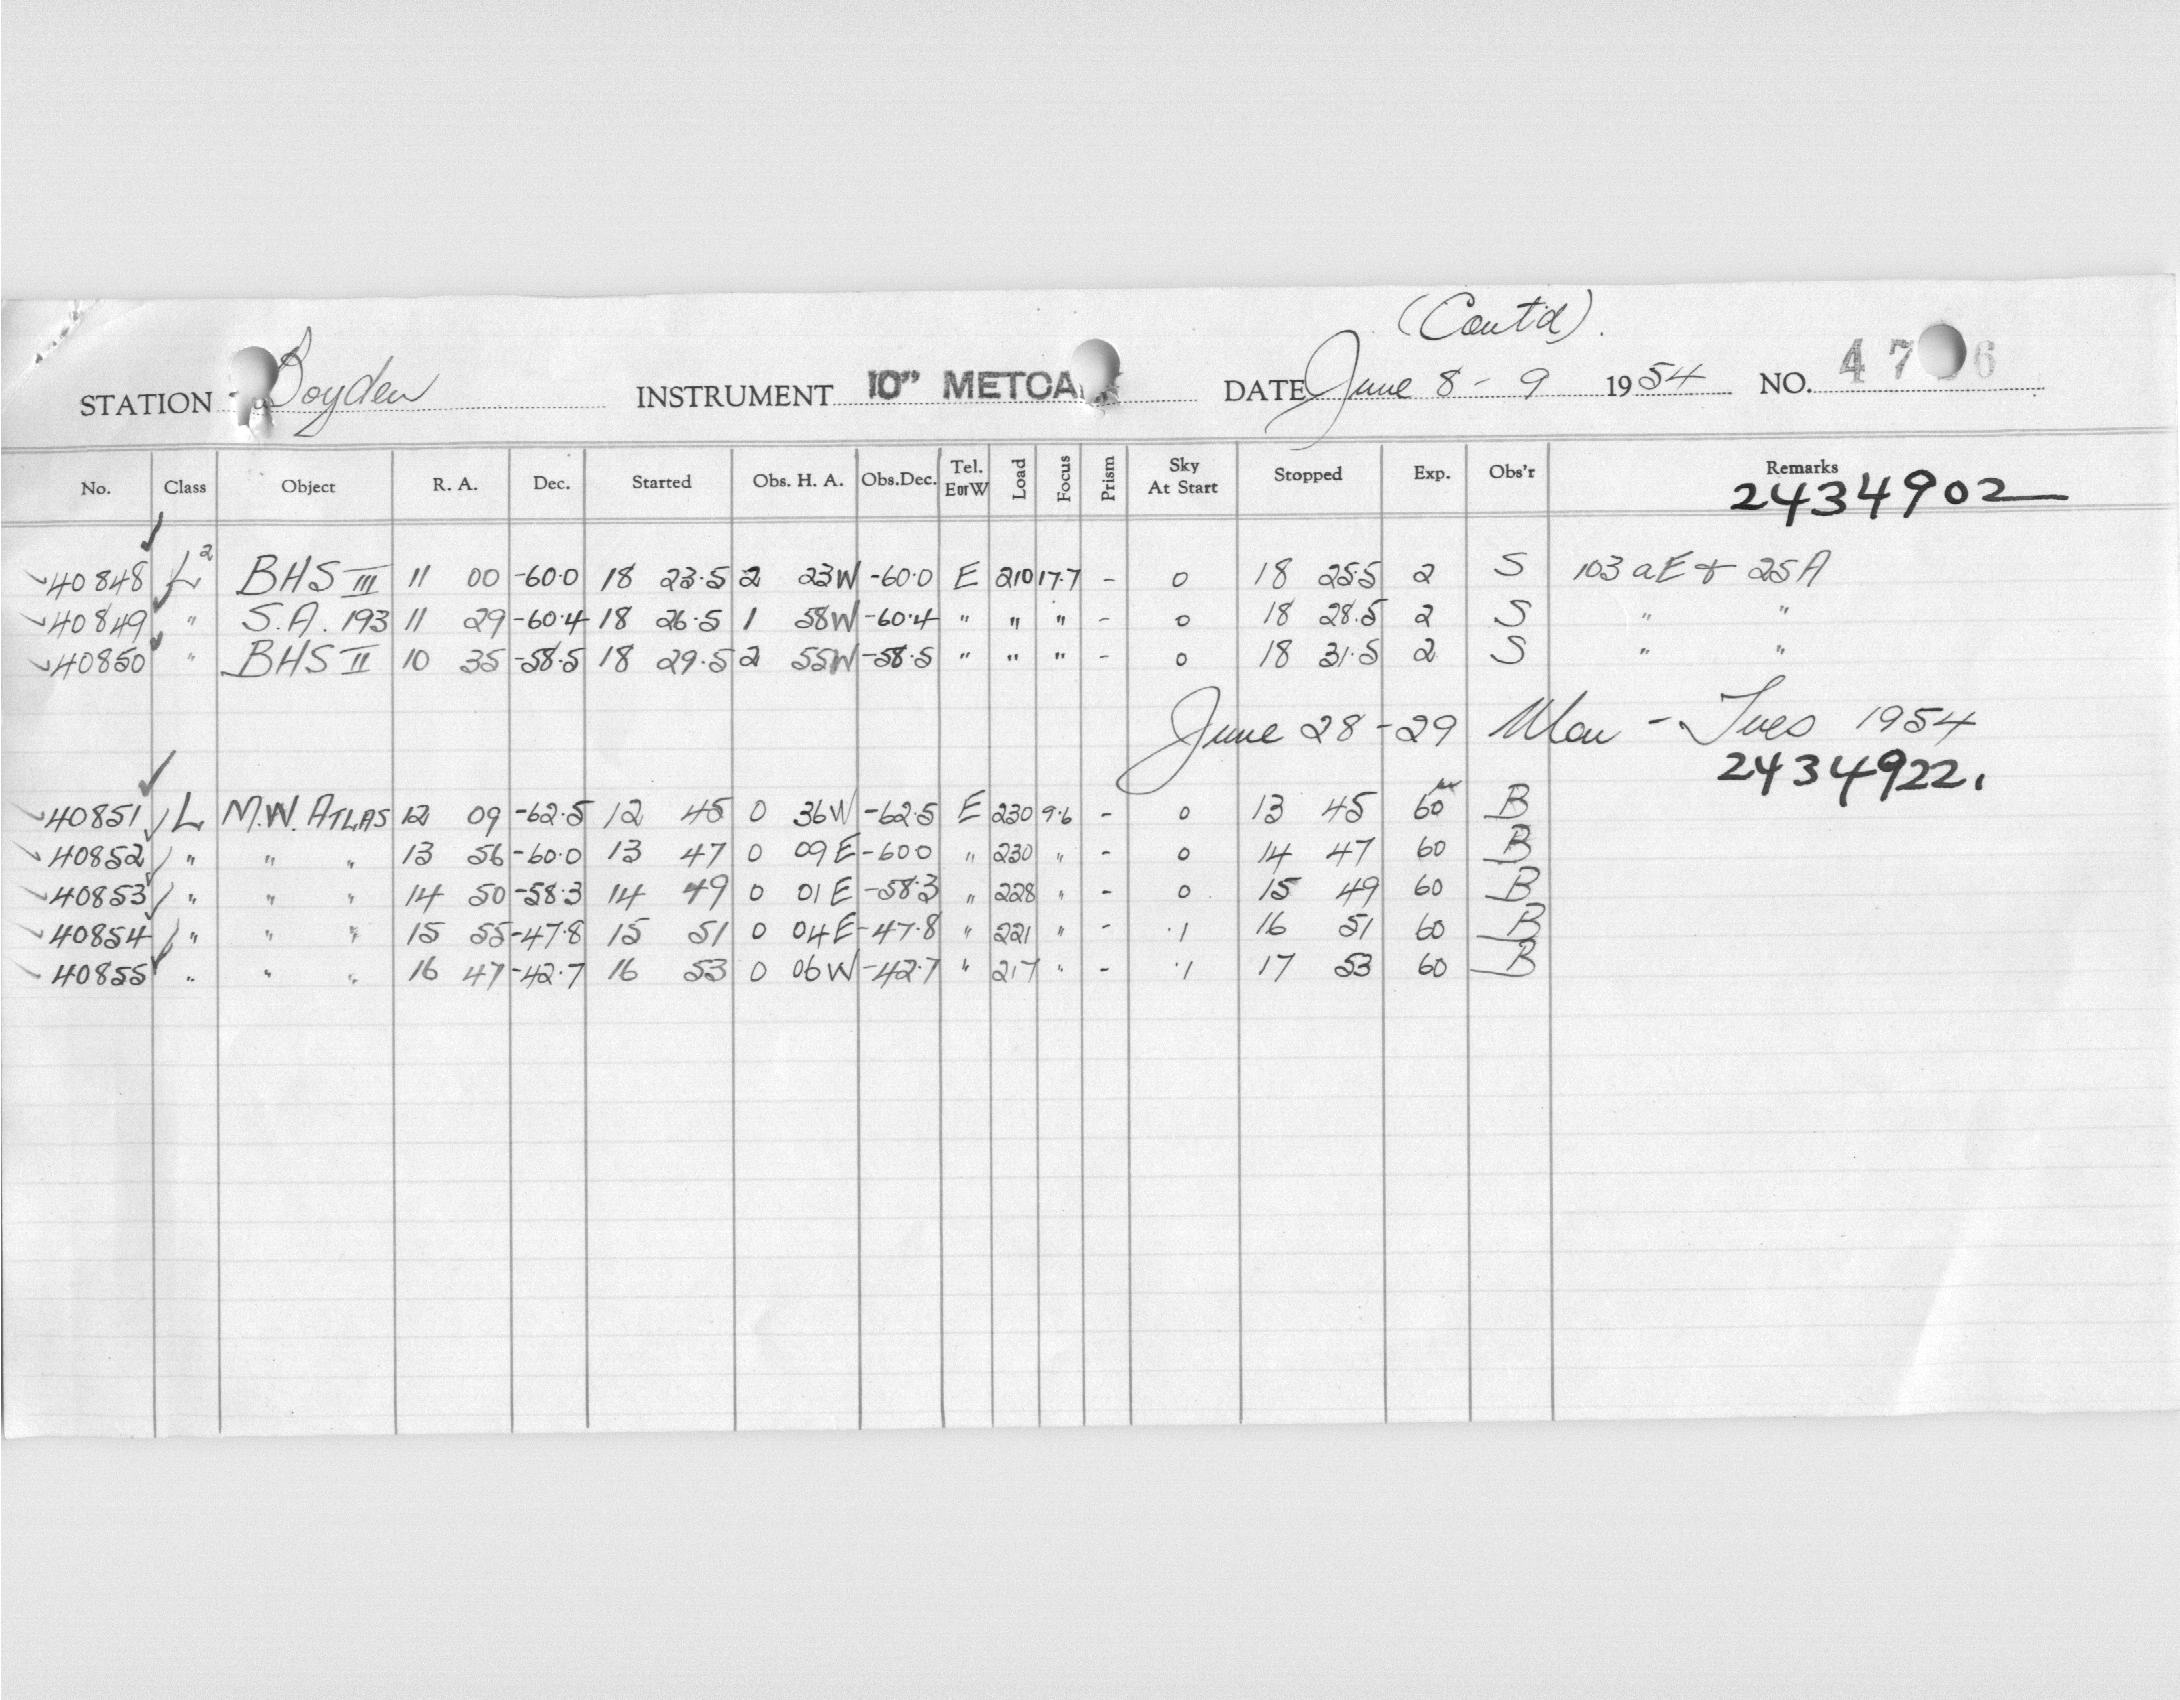 (Cont'd).
STATION Boyden INSTRUMENT 10" METCA DATE June 8 - 9 1954 NO. 47 6
No. Class Object R. A. Dec. Started Obs. H. A. Obs.Dec. Tel. E or W Load Focus Prism Sky At Start Stopped Exp. Obs'r Remarks
2434902
40848 L² BHS III 11 00 -60.0 18 23.5 2 23W -60.0 E 210 17.7 - 0 18 25.5 2 S 103aE + 25A
40849 " S.A. 193 11 29 -60.4 18 26.5 1 58W -60.4 " " " - 0 18 28.5 2 S " "
40850 " BHS II 10 35 -58.5 18 29.5 2 55W -58.5 " " " - 0 18 31.5 2 S " "
June 28-29 Mon - Tues 1954
2434922.
40851 L M.W. ATLAS 12 09 -62.5 12 45 0 36W -62.5 E 230 9.6 - 0 13 45 60 B
40852 " " " 13 56 -60.0 13 47 0 09E -60.0 " 230 " - 0 14 47 60 B
40853 " " " 14 50 -58.3 14 49 0 01E -58.3 " 228 " - 0 15 49 60 B
40854 " " " 15 55 -47.8 15 51 0 04E -47.8 " 221 " - .1 16 51 60 B
40855 " " " 16 47 -42.7 16 53 0 06W -42.7 " 217 " - .1 17 53 60 B